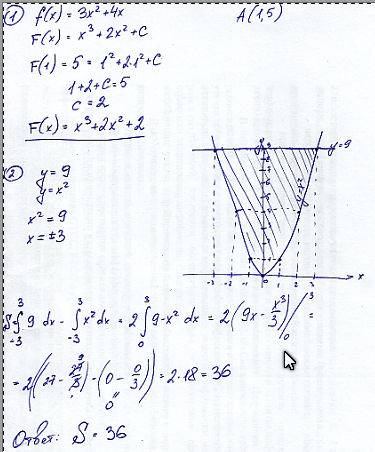 ① f(x) = 3x² + 4x     A(1,5)
F(x) = x³ + 2x² + C
F(1) = 5 = 1² + 2·1² + C
1 + 2 + C = 5
C = 2
F(x) = x³ + 2x² + 2
② y = 9
y = x²
x² = 9
x = ±3
y = 9
y = x²
-3 -2 -1 0 1 2 3 x
S = ∫₋₃³ 9 dx - ∫₋₃³ x² dx = 2 ∫₀³ 9 - x² dx = 2(9x - x³/3) |₀³ =
= 2((27 - 27/3) - (0 - 0/3)) = 2·18 = 36
9
0
Ответ: S = 36